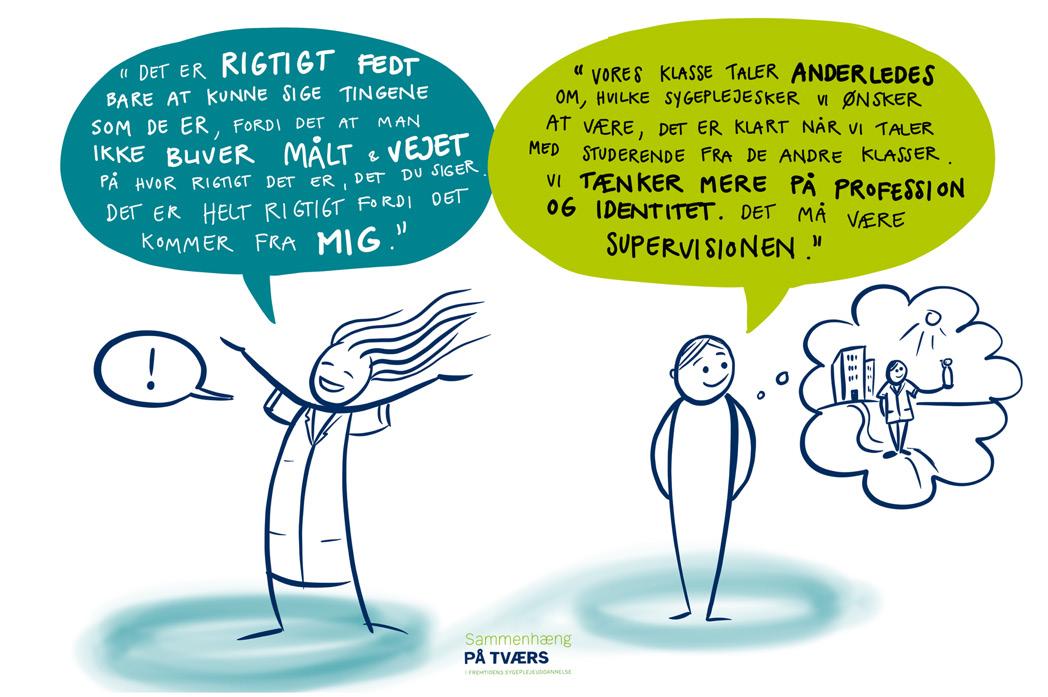 " DET ER RIGTIGT FEDT
BARE AT KUNNE SIGE TINGENE
SOM DE ER, FORDI DET AT MAN
IKKE BLIVER MÅLT & VEJET
PÅ HVOR RIGTIGT DET ER, DET DU SIGER.
DET ER HELT RIGTIGT FORDI DET
KOMMER FRA MIG."
" VORES KLASSE TALER ANDERLEDES
OM, HVILKE SYGEPLEJESKER VI ØNSKER
AT VÆRE, DET ER KLART NÅR VI TALER
MED STUDERENDE FRA DE ANDRE KLASSER.
VI TÆNKER MERE PÅ PROFESSION
OG IDENTITET. DET MÅ VÆRE
SUPERVISIONEN."
!
Sammenhæng
PÅ TVÆRS
I FREMTIDENS SYGEPLEJEUDDANNELSE